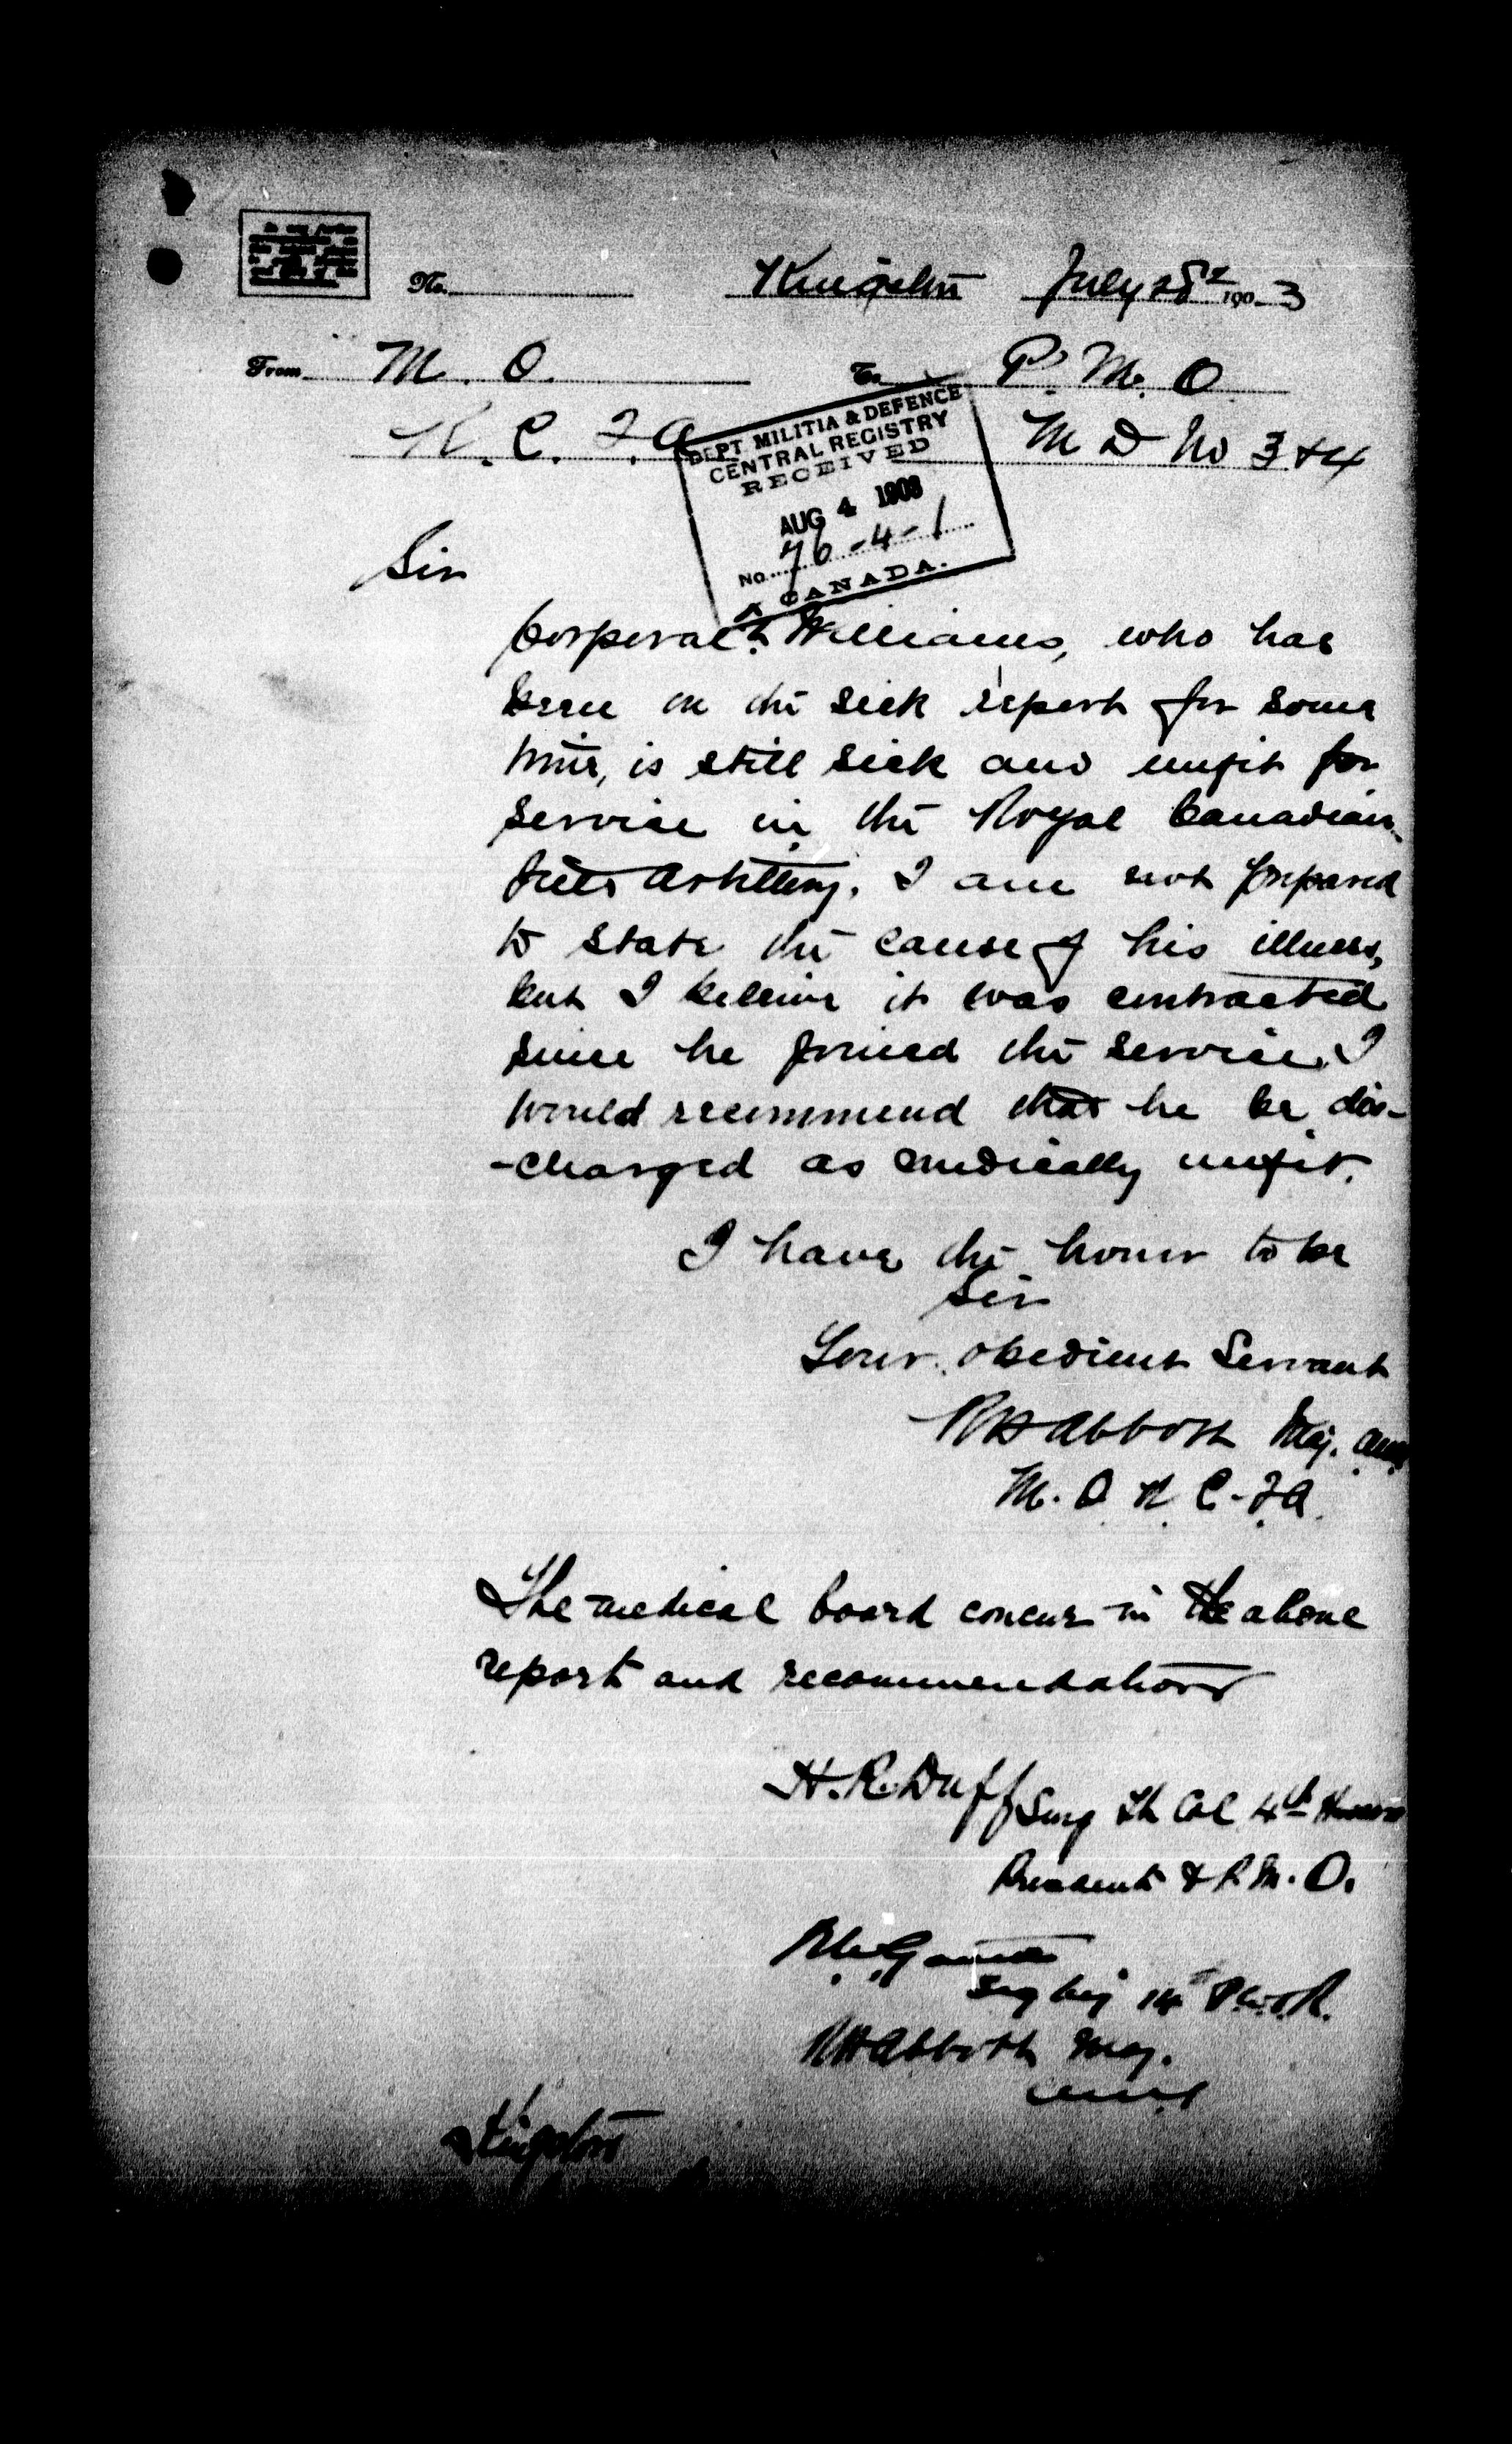 No. Kingston July 28th 1903
From M. O. To P. M. O.
R. C. F. A. M D No 3 & 4
DEPT. MILITIA & DEFENCE
CENTRAL REGISTRY
RECEIVED
AUG 4 1903
No. 76-4-1
CANADA.
Sir
Corporal Williams, who has
been on the sick report for some
time, is still sick and unfit for
service in the Royal Canadian
Field Artillery. I am not prepared
to state the cause of his illness,
but I believe it was contracted
since he joined the service. I
would recommend that he be dis-
-charged as medically unfit.
I have the honor to be
Sir
Your obedient Servant
R H Abbott Maj. AMS
M. O. R. C. F. A.
The medical board concur in the above
report and recommendations
H. R. Duff Surg Lt Col 4th Hussars
President & P. M. O.
Surg Maj 14th P.W.O.R.
R H Abbott Maj.
AMS
Kingston